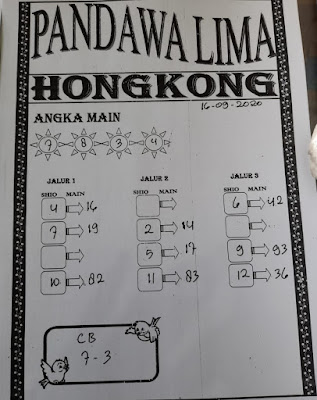 PANDAWA LIMA
HONGKONG
16-09-2020
ANGKA MAIN
7 8 3 4
JALUR 1 JALUR 2 JALUR 3
SHIO MAIN SHIO MAIN SHIO MAIN
4 16 6 42
7 19 2 14
5 17 9 93
10 82 11 83 12 36
CB
7-3